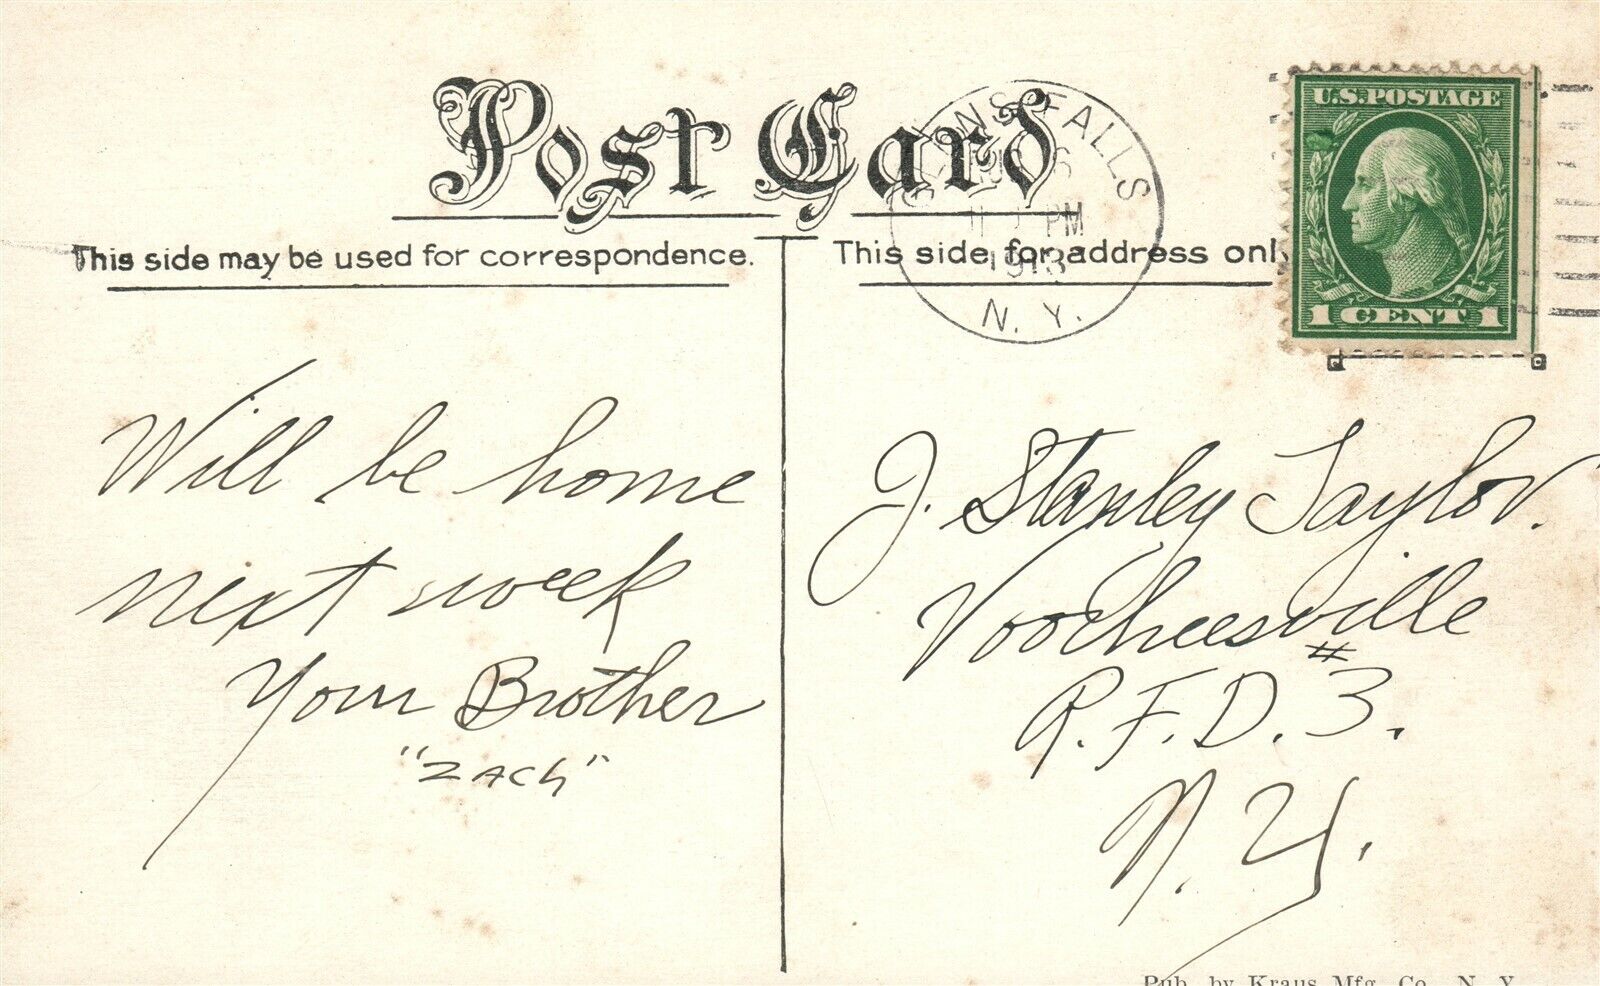 Post Card
This side may be used for correspondence.
This side for address only
FALLS
6
PM
1913
N. Y.
U.S.POSTAGE
1 CENT 1
Will be home
next week
Your Brother
"ZACH"
J. Stanley Taylor.
Voorheesville
R.F.D. #3.
N.Y.
Pub. by Kraus Mfg. Co., N. Y.